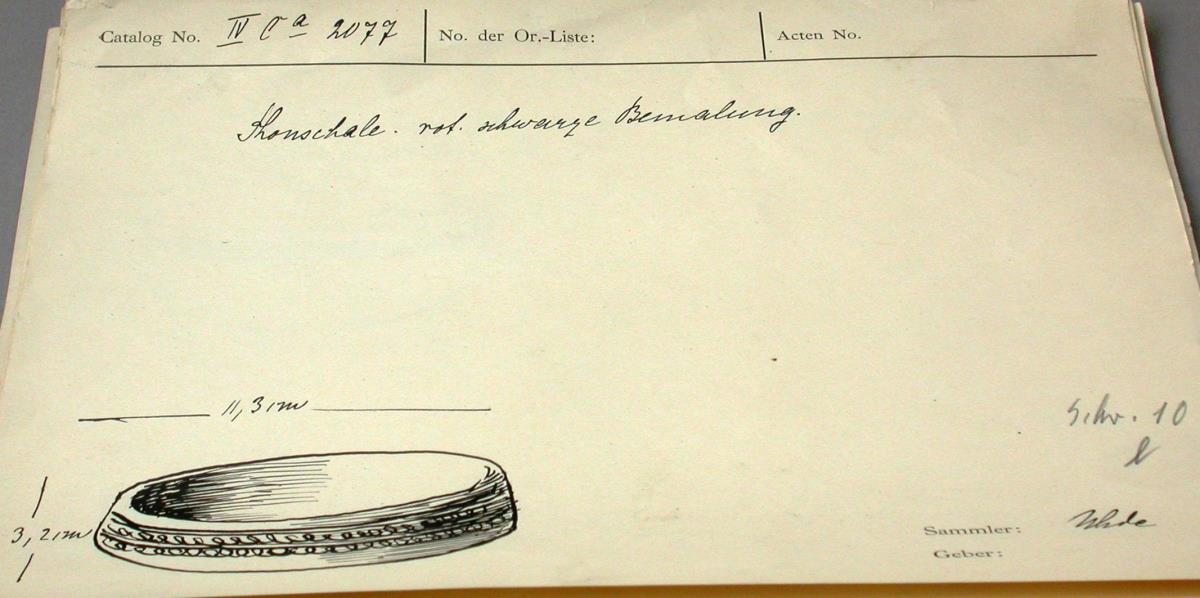 Catalog No. IV Ca 2077 No. der Or.-Liste: Acten No.
Thonschale. rot. schwarze Bemalung.
11,3 cm
3,2 cm
Schr. 10
Sammler: Uhde
Geber: